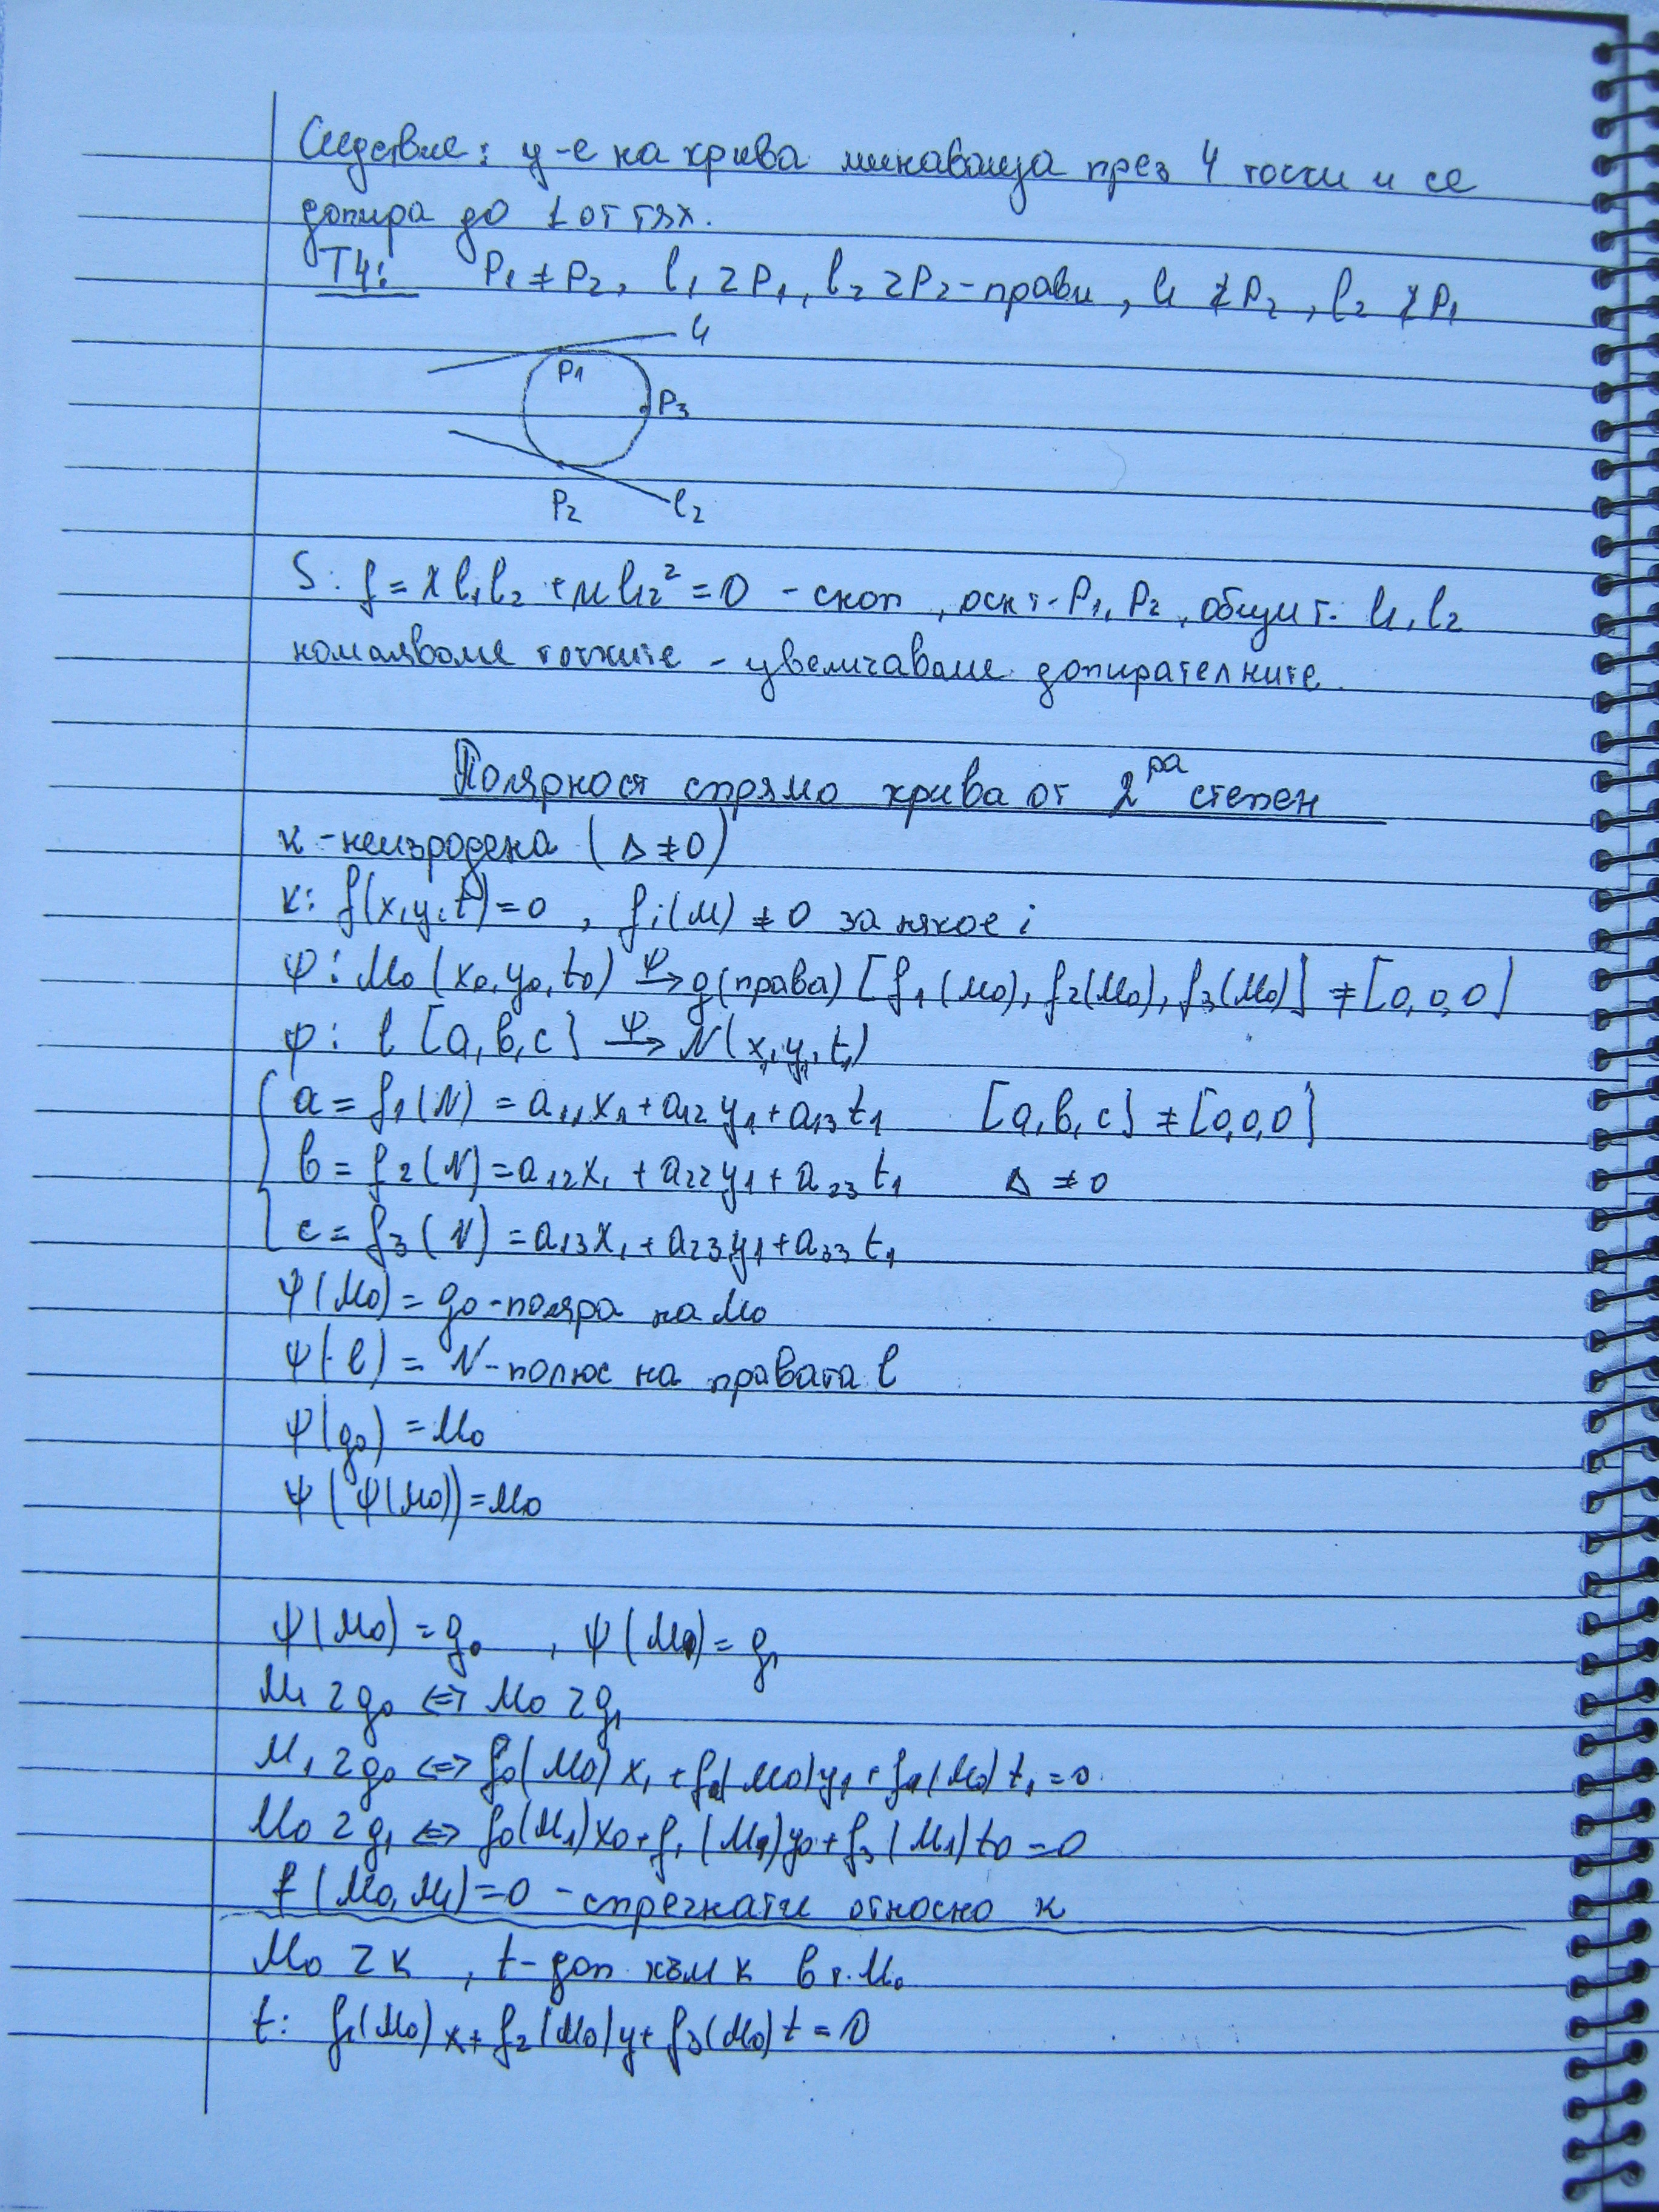 Следствие: у-е на крива минаваща през 4 точки и се
допира до 1 от тях.
Т4: P₁ ≠ P₂, l₁ ƶ P₁, l₂ ƶ P₂ - прави, l₁ ƶ̸ P₂, l₂ ƶ̸ P₁
l₁
P₁
P₃
P₂
l₂
S: f = λ l₁l₂ + μ l₁₂² = 0 - сноп, осн т. P₁, P₂, общи т. l₁, l₂
намаляваме точките - увеличаваме допирателните.
Полярност спрямо крива от 2ра степен
к - неизродена (Δ ≠ 0)
к: f(x,y,t) = 0, fi(M) ≠ 0 за някое i
ψ: M₀(x₀,y₀,t₀) →ψ g(права) [f₁(M₀), f₂(M₀), f₃(M₀)] ≠ [0,0,0]
φ: l [a,b,c] →ψ N(x₁,y₁,t₁)
a = f₁(N) = a₁₁x₁ + a₁₂y₁ + a₁₃t₁ [a,b,c] ≠ [0,0,0]
b = f₂(N) = a₁₂x₁ + a₂₂y₁ + a₂₃t₁ Δ ≠ 0
c = f₃(N) = a₁₃x₁ + a₂₃y₁ + a₃₃t₁
ψ(M₀) = g₀ - поляра на M₀
ψ(l) = N - полюс на правата l
ψ(g₀) = M₀
ψ(ψ(M₀)) = M₀
ψ(M₀) = g₀, ψ(M₁) = g₁
M₁ ƶ g₀ ⇔ M₀ ƶ g₁
M₁ ƶ g₀ ⇔ f₀(M₀)x₁ + f₂(M₀)y₁ + f₁(M₀)t₁ = 0
M₀ ƶ g₁ ⇔ f₀(M₁)x₀ + f₁(M₁)y₀ + f₃(M₁)t₀ = 0
f(M₀,M₁) = 0 - спрегнати относно к
M₀ ƶ к, t - доп към к в т. M₀
t: f₁(M₀)x + f₂(M₀)y + f₃(M₀)t = 0